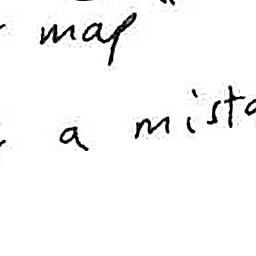 map
a mista